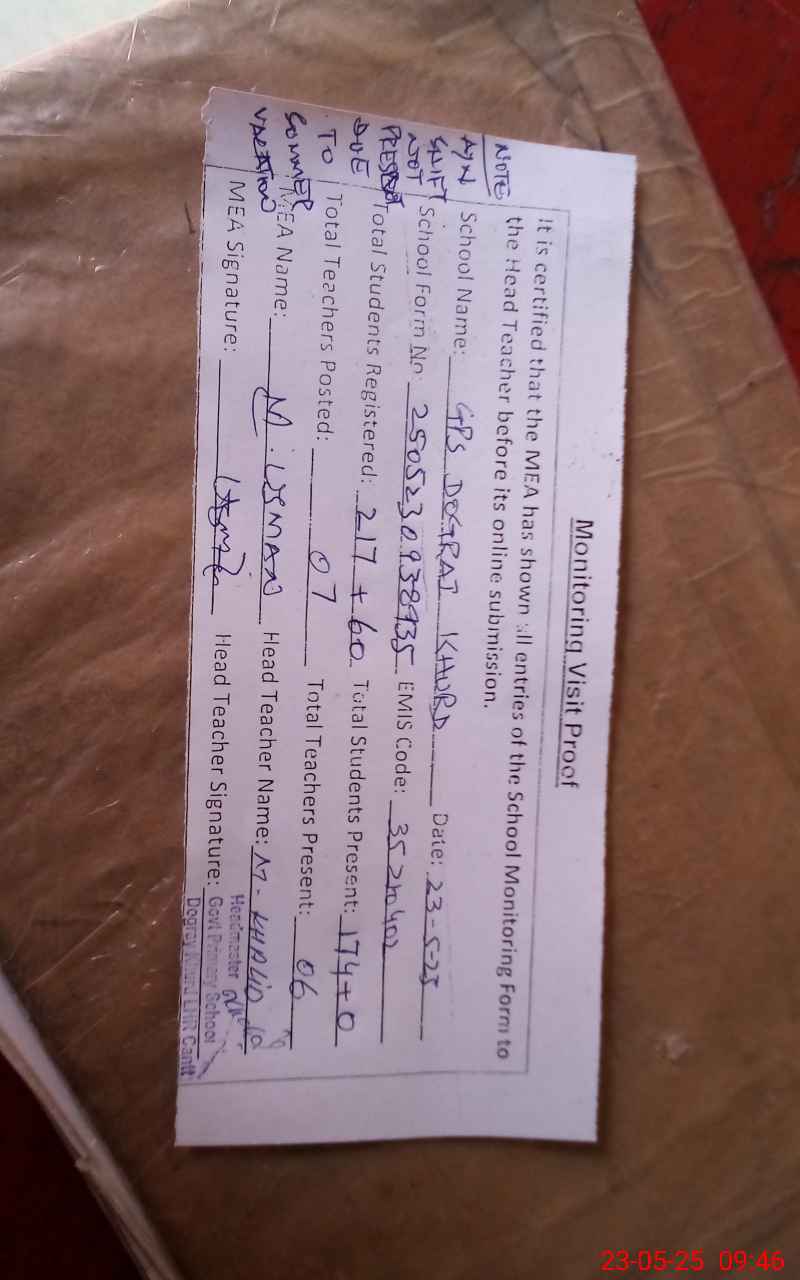 Monitoring Visit Proof
It is certified that the MEA has shown all entries of the School Monitoring Form to
the Head Teacher before its online submission.
NOTE
A/N
SHIFT
NOT
PRESENT
DUE
TO
SUMMER
VACATION
School Name: GPS DOGRAI KHURD Date: 23-5-25
School Form No: 2505230938935 EMIS Code: 35210402
Total Students Registered: 217 + 60 Total Students Present: 174+0
Total Teachers Posted: 07 Total Teachers Present: 06
MEA Name: M. USMAN Head Teacher Name: M. KHALID
MEA Signature: Head Teacher Signature:
Headmaster
Govt Primary School
Dogray Khurd LHR Cantt
23-05-25 09:46